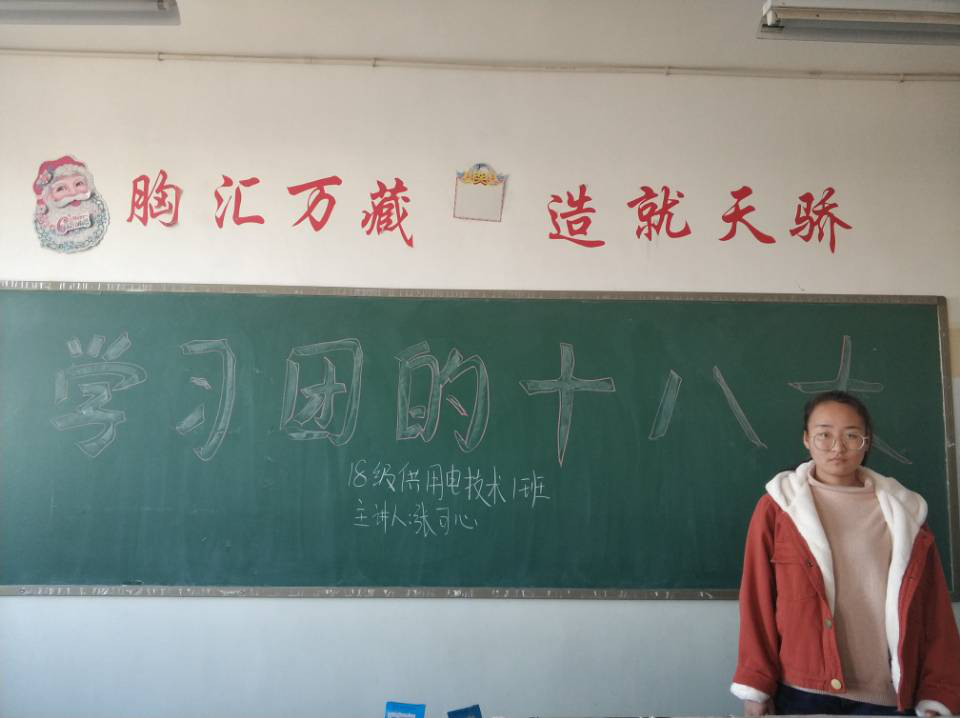 胸汇万藏 造就天骄
学习团的十八大
18级供用电技术1班
主讲人:张可心